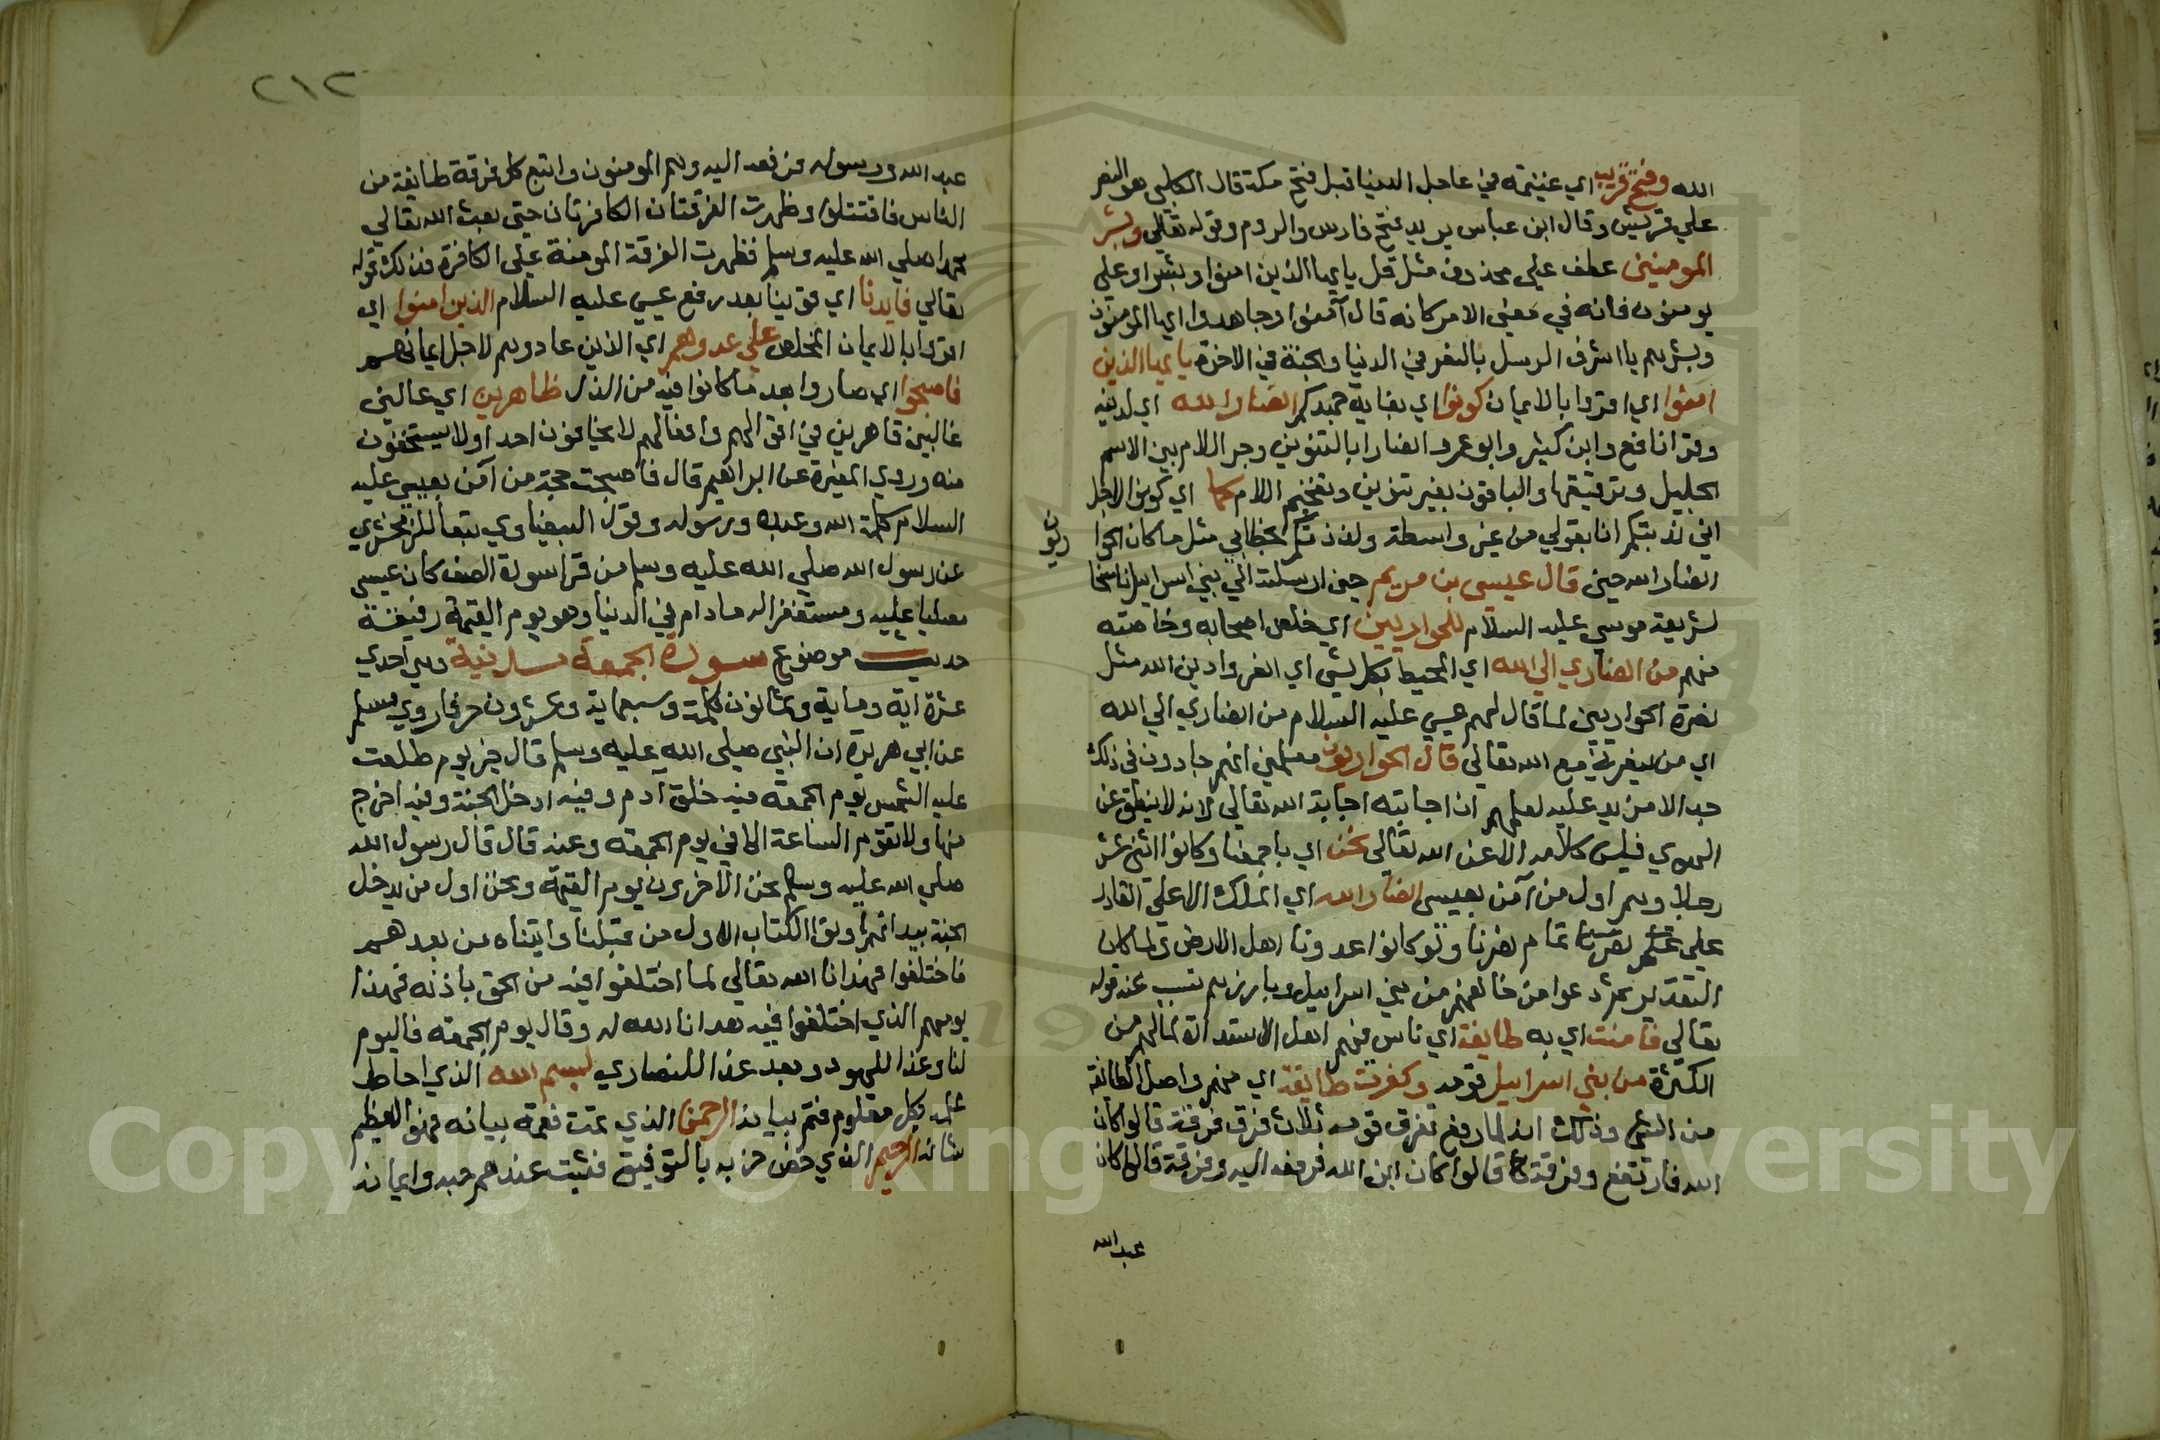 الله وفتح قريب اي غنيمة في عاجل الدنيا قبل فتح مكة قال الكلبي هو النصر
علي قريش وقال ابن عباس يريد فتح فارس والروم وقوله تعالي وبشر
المومنين عطف علي محذوف مثل قل يايها الذين امنوا وبشر او علي
يومنون فانه في معني الامر كانه قال آمنوا وجاهدوا ايها المومنون
وبشرهم يا اشرف الرسل بالنصر في الدنيا والجنة في الاخرة يايها الذين
امنوا اي اقروا بالايمان كونوا اي بغاية جهدكم انصارا لله اي لدينه
وقرا نافع وابن كثير وابو عمرو انصارا بالتنوين وجر اللام بين الاسم
الجليل وترقيقها والباقون بغير تنوين وتفخيم اللام كما اي كونوا لاجل
اني ندبتكم انا بقولي من غير واسطة ولذذتكم بخطابي مثل ما كان الحوا
ريون
انصار الله حين قال عيسى بن مريم حين ارسلته الي بني اسرايل ناسخا
لشريعة موسي عليه السلام للحواريين اي خلص اصحابه وخاصته
منهم من انصاري الي الله اي المحيط بكل شي اي انصروا دين الله مثل
نصرة الحواريين لما قال لهم عيسي عليه السلام من انصاري الي الله
اي من ينصرني مع الله تعالي قال الحواريون معلمين انهم جادون في ذلك
جدا لا مزيد عليه لعلمهم ان اجابته اجابة الله تعالي لانه لا ينطق عن
الهوي فليس كلامه الا عن الله تعالي نحن اي باجمعنا وكانوا اثني عشر
رجلا وهم اول من آمن بعيسى انصار الله اي الملك الاعلي القادر
علي تمام نصرنا ولو كانوا عدونا اهل الارض ولما كان
التقدير ثم دعوا من خالفهم من بني اسرايل وبارزهم تسبب عنه قوله
تعالي فامنت اي به طايفة اي ناس فيهم اهل الاستدارة لما لهم من
الكثرة من بني اسرايل قومه وكفرت طايفة اي منهم واصل الطايفة
من الشي وذلك انه لما رفع تفرق قومه ثلاث فرق فرقة قالوا كان
الله فارتفع وفرقة قالوا كان ابن الله فرفعه اليه وفرقة قالوا كان
عبد الله
٢١٢
عبد الله ورسوله فرفعه اليه وهم المومنون واتبع كل فرقة طايفة من
الناس فاقتتلوا وظهرت الفرقتان الكافرتان حتى بعث الله تعالي
محمدا صلي الله عليه وسلم فظهرت الفرقة المومنة علي الكافرة فذلك قوله
تعالي فايدنا اي قوينا بعد رفع عيسي عليه السلام الذين امنوا اي
اقروا بالايمان المخلص علي عدوهم اي الذين عادوهم لاجل ايمانهم
فاصبحوا اي صاروا بعد ما كانوا فيه من الذل ظاهرين اي عالين
غالبين قاهرين في اقوالهم وافعالهم لا يخافون احدا ولا يستخفون
منه وروي المغيرة عن ابراهيم قال فاصبحت حجة من آمن بعيسي عليه
السلام كلمة الله وعبده ورسوله وقول البيضاوي تبعا للزمخشري
عن رسول الله صلي الله عليه وسلم من قرا سورة الصف كان عيسى
مصليا عليه ومستغفرا له مادام في الدنيا وهو يوم القيمة رفيقه
حديث موضوع سورة الجمعة مدنية وهي احدي
عشرة اية وماية وثمانون كلمة وسبعماية وعشرون حرفا روي مسلم
عن ابي هريرة ان النبي صلي الله عليه وسلم قال خير يوم طلعت
عليه الشمس يوم الجمعة فيه خلق آدم وفيه ادخل الجنة وفيه اخرج
منها ولا تقوم الساعة الا في يوم الجمعة وعنه قال قال رسول الله
صلي الله عليه وسلم نحن الآخرون يوم القيمة ونحن اول من يدخل
الجنة بيد انهم اوتوا الكتاب الاول من قبلنا واتيناه من بعدهم
فاختلفوا فهدانا الله تعالي لما اختلفوا فيه من الحق باذنه فهذا
يومهم الذي اختلفوا فيه هدانا الله له وقال يوم الجمعة فاليوم
لنا وغدا لليهود وبعد غد للنصاري بسم الله الذي احاط
علمه بكل معلوم فتم بيانه الرحمن الذي عمت نعمة بيانه فهو العظيم
شانه الرحيم الذي خص حزبه بالتوفيق فثبت عندهم حبه وايمانه
Copyright © King Saud University